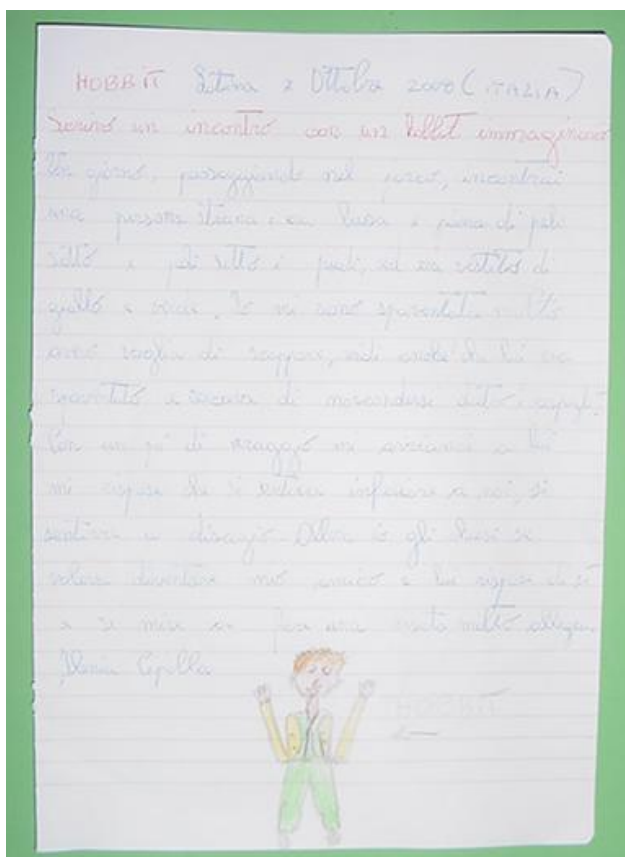 HOBBIT Latina 2 Ottobre 2000 (ITALIA)
un incontro con un hobbit immaginario
Un giorno, passeggiando nel parco, incontrai
una persona strana era bassa e piena di peli
sotto i piedi, ed era vestito di
giallo e verde, Io mi sono spaventata molto
avevo voglia di scappare, vidi anche che lui era
spaventato e cercava di nascondersi dietro i cespugli.
Con un pò di coraggio mi avvicinai a lui
mi rispose che si sentiva inferiore a noi, si
sentiva a disagio. Allora io gli chiesi se
voleva diventare mio amico e lui rispose di sì
e si mise a fare una molto allegra.
Ilenia
HOBBIT